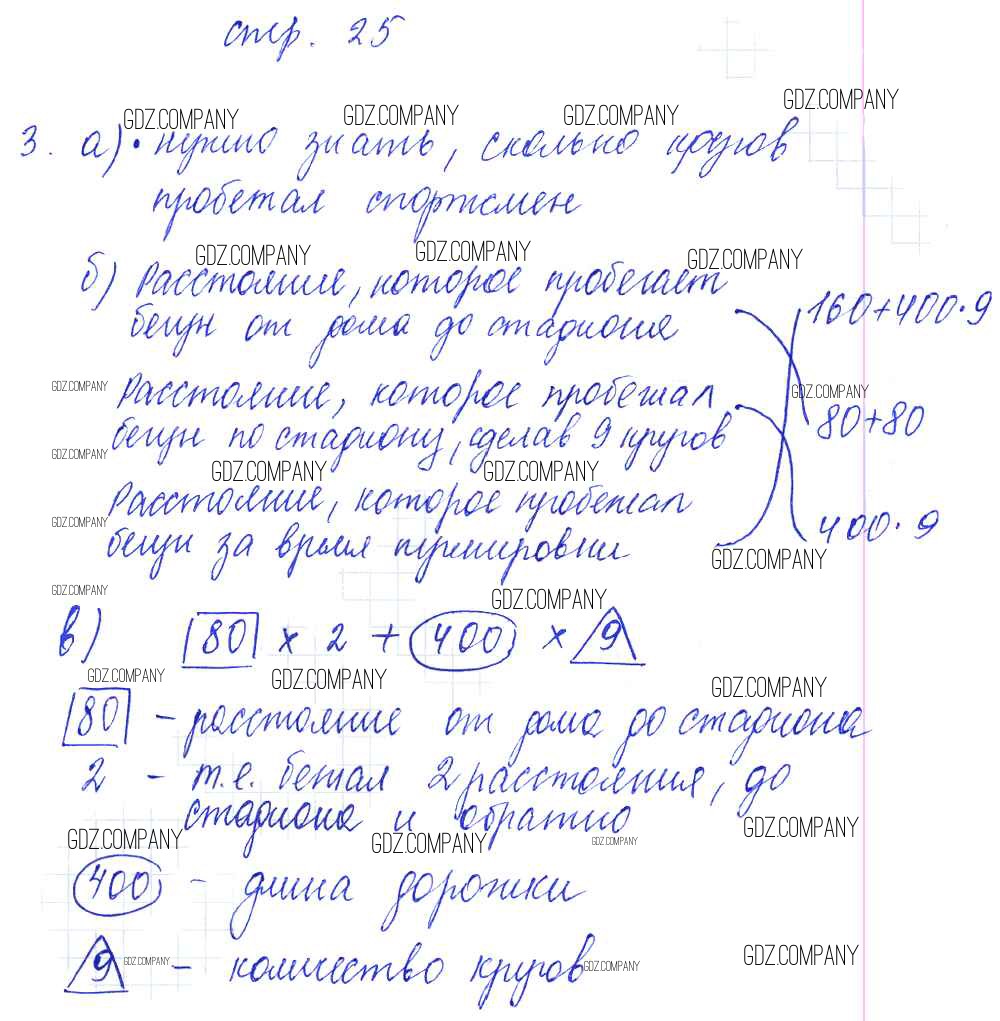 стр. 25
GDZ.COMPANY GDZ.COMPANY GDZ.COMPANY GDZ.COMPANY
3. а) • нужно знать, сколько кругов
пробежал спортсмен
GDZ.COMPANY GDZ.COMPANY GDZ.COMPANY
б) Расстояние, которое пробегает
бегун от дома до стадиона
160+400·9
GDZ.COMPANY GDZ.COMPANY
Расстояние, которое пробежал
бегун по стадиону, сделав 9 кругов
80+80
GDZ.COMPANY
GDZ.COMPANY GDZ.COMPANY
Расстояние, которое пробежал
GDZ.COMPANY
бегун за время тренировки
400·9
GDZ.COMPANY
GDZ.COMPANY GDZ.COMPANY
в) 80 × 2 + 400 × 9
GDZ.COMPANY GDZ.COMPANY GDZ.COMPANY
80 – расстояние от дома до стадиона
2 – т.е. бежал 2 расстояния, до
стадиона и обратно
GDZ.COMPANY GDZ.COMPANY GDZ.COMPANY GDZ.COMPANY
400 – длина дорожки
9 – количество кругов
GDZ.COMPANY GDZ.COMPANY GDZ.COMPANY